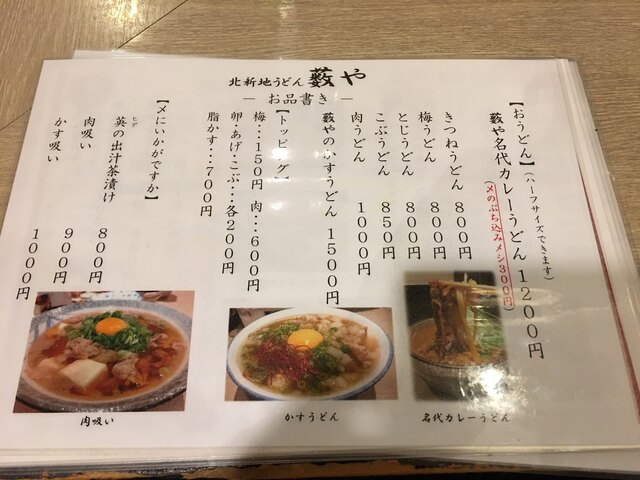 北新地うどん 藪や
― お品書き ―
【おうどん】(ハーフサイズできます)
藪や名代カレーうどん 1200円
(〆のぶち込みメシ300円)
きつねうどん 800円
梅うどん 800円
とじうどん 800円
こぶうどん 850円
肉うどん 1000円
藪やのかすうどん 1500円
【トッピング】
梅・・・150円 肉・・・600円
卵・あげ・こぶ・・・各200円
脂かす・・・700円
【〆にいかがですか】
英の出汁茶漬け 800円
ヒデ
肉吸い 900円
かす吸い 1000円
肉吸い
かすうどん
名代カレーうどん